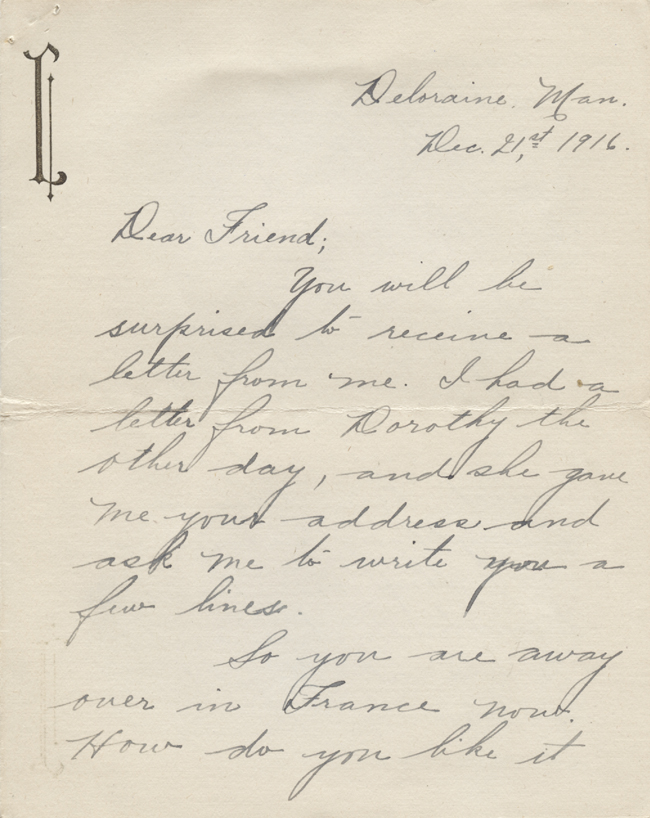 L
Deloraine. Man.
Dec. 21,st 1916.
Dear Friend;
You will be
surprised to receive a
letter from me. I had a
letter from Dorothy the
other day, and she gave
me your address and
ask me to write you a
few lines.
So you are away
over in France now.
How do you like it